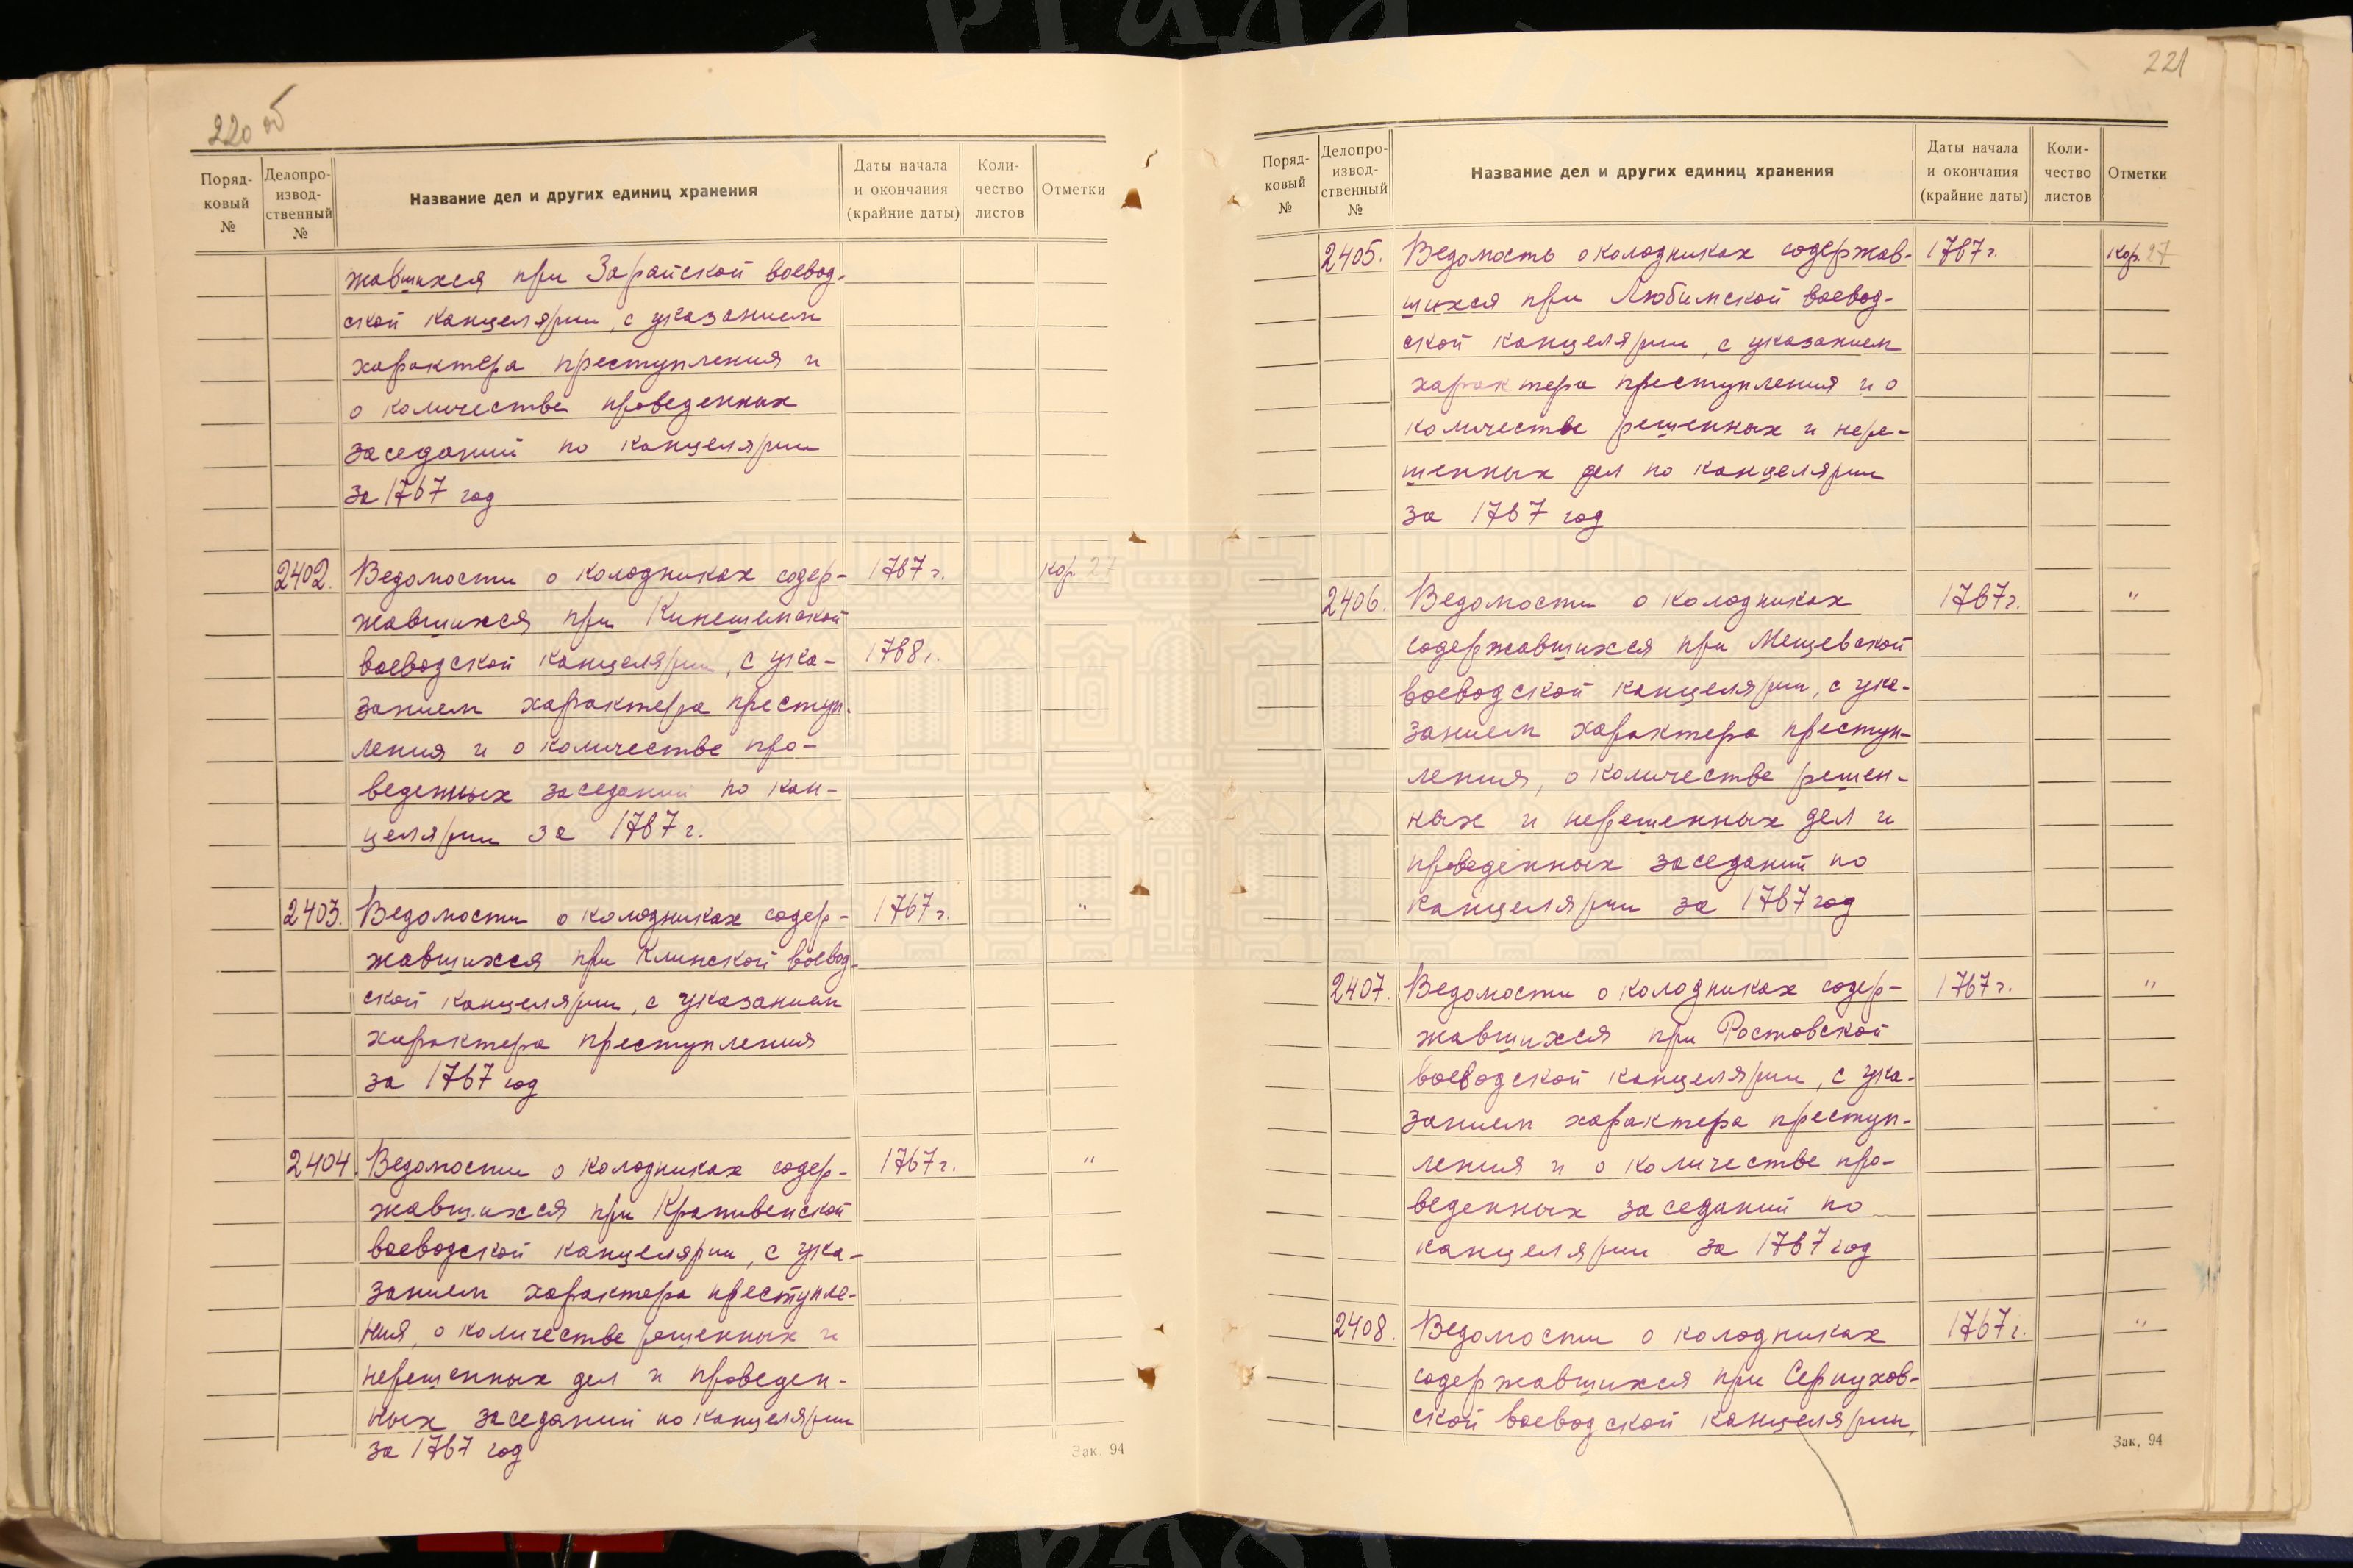 220 об
Поряд-
ковый
№
Делопро-
извод-
ственный
№
Название дел и других единиц хранения
Даты начала
и окончания
(крайние даты)
Коли-
чество
листов
Отметки
жавшихся при Зарайской воевод-
ской канцелярии, с указанием
характера преступления и
о количестве проведенных
заседаний по канцелярии
за 1767 год
2402. Ведомости о колодниках содер- 1767 г. кор. 27
жавшихся при Кинешемской
воеводской канцелярии, с ука- 1768 г.
занием характера преступ-
ления и о количестве про-
веденных заседаний по кан-
целярии за 1767 г.
2403. Ведомости о колодниках содер- 1767 г. "
жавшихся при Клинской воевод-
ской канцелярии, с указанием
характера преступления
за 1767 год
2404. Ведомости о колодниках содер- 1767 г. "
жавшихся при Крапивенской
воеводской канцелярии, с ука-
занием характера преступле-
ния, о количестве решенных и
нерешенных дел и проведен-
ных заседаний по канцелярии
за 1767 год
Зак. 94
221
Поряд-
ковый
№
Делопро-
извод-
ственный
№
Название дел и других единиц хранения
Даты начала
и окончания
(крайние даты)
Коли-
чество
листов
Отметки
2405. Ведомость о колодниках содержав- 1767 г. кор. 27
шихся при Любимской воевод-
ской канцелярии, с указанием
характера преступления и о
количестве решенных и нере-
шенных дел по канцелярии
за 1767 год
2406. Ведомости о колодниках 1767 г. "
содержавшихся при Мещевской
воеводской канцелярии, с ука-
занием характера преступ-
ления, о количестве решен-
ных и нерешенных дел и
проведенных заседаний по
канцелярии за 1767 год
2407. Ведомости о колодниках содер- 1767 г. "
жавшихся при Ростовской
воеводской канцелярии, с ука-
занием характера преступ-
ления и о количестве про-
веденных заседаний по
канцелярии за 1767 год
2408. Ведомости о колодниках 1767 г. "
содержавшихся при Серпухов-
ской воеводской канцелярии,
Зак. 94